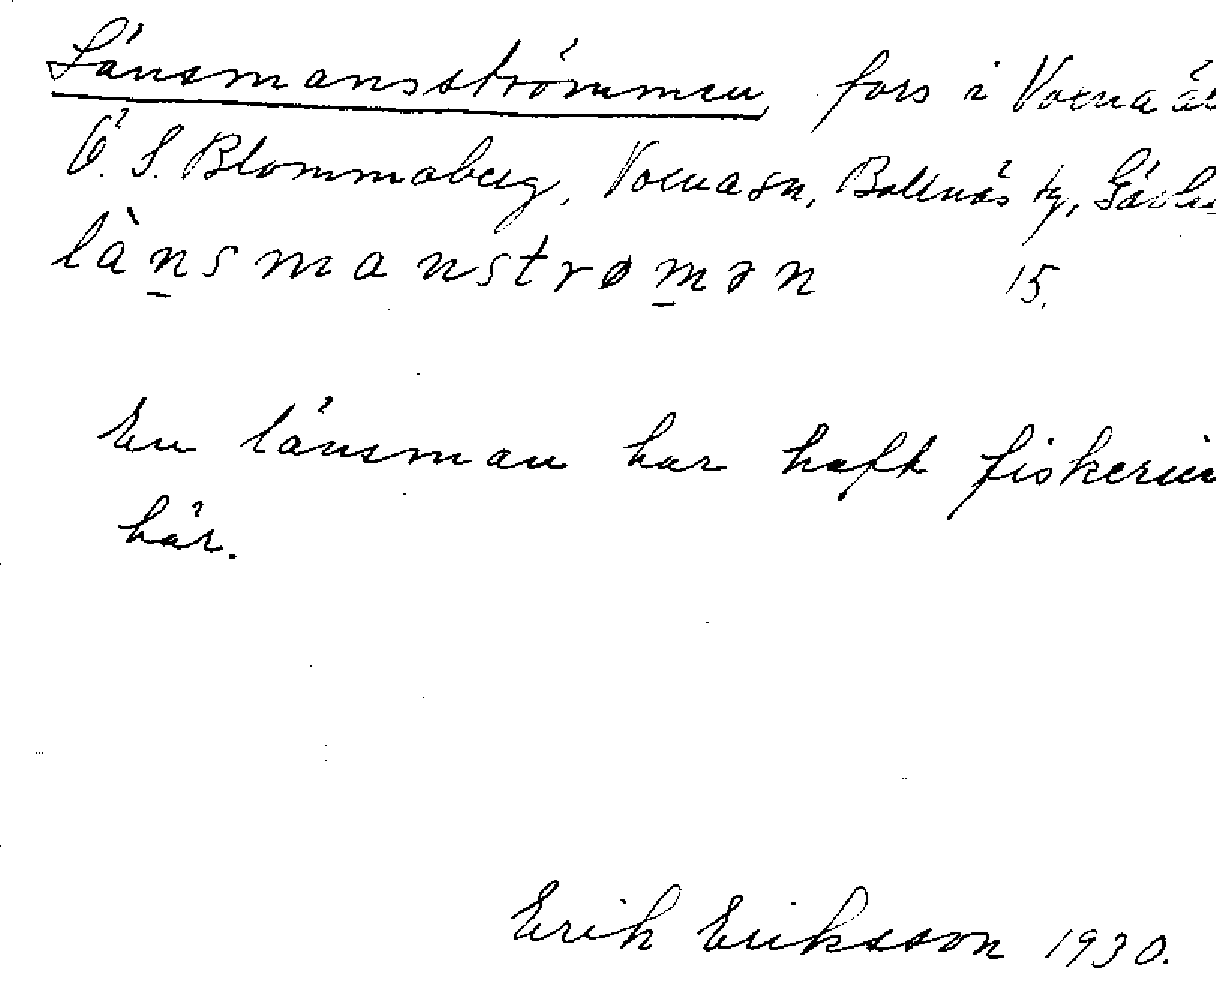 Länsmansströmmen, fors i Voxnaä
Ö. S. Blommaberg, Voxna sn, Bollnäs tg, Gävle
lànsmanstrømən 15.
En länsman har haft
här.
Erik Eriksson 1930.